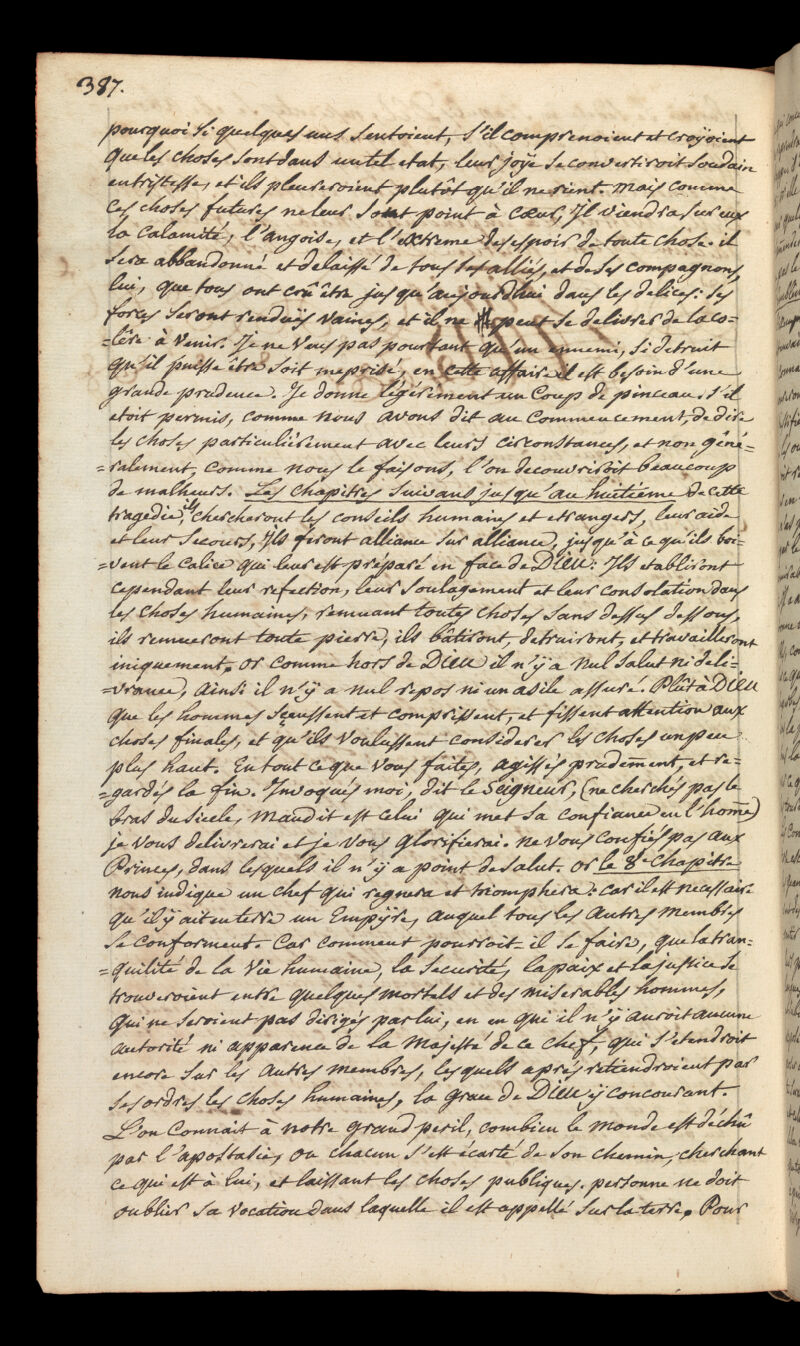 387.
pourquoi si quelques uns sentoient, s'il comprenoient et croÿoient
que les choses sont dans un tel etat, leur joÿe se convertiroit soudain
en tristesse, et ils pleureroient plutôt qu'il ne rient. mais comme
ces choses futures ne leur sont point à cœur, Il viendra sur eux
la Calamité, l'angoise, et l'extreme desespoir de toute chose. il
sera abbandonné et delaissé de tous ses alliés, et de ses compagnons,
lui, que tous ont crû être jusqu'aujourdhui dans les delices: ses
forces seront renduës vaines, et il ne peut se delivrer de la co=
=lère à venir. Je ne veus pas pourtant qu'un ennemi, si detruit
qu'il puisse être soit meprisé, en cette affaire il est besoin d'une
grande prudence. Je donne légérement un Coup de pinceau. s'il
etoit permis, comme nous avons dit au Commencement, de dire
les choses particulièrement avec leurs circonstances, et non géné=
=ralement, comme nous le faisons, l'on decouvriroit beaucoup
de malheurs. Les Chapitres suivans jusqu'au huitieme de cette
tragedie, ils chercheront les conseils humains et etrangers, leur aide
et leur secours, Ils feront alliance sur alliance, jusqu'à ce qu'ils boi=
=vent le Calice qui leur est préparé en face de Dieu: Ils etabliront
cependant leur refection, leur soulagement et leur consolation dans
les choses humaines, remuant toutes choses sans dessus dessous,
ils remueront toute pierre, ils bâtiront, detruiront, et travailleront
iniquement. or comme hors de Dieu il n'ÿ a nul salut ni deli=
=vrance, ainsi il n'ÿ a nul repos ni un asile assuré. Plût à Dieu
que les hommes sçeussent et comprissent, et fissent attention aux
choses finales, et qu'ils voulussent considerer les choses un peu
plus haut. En tout ce que vous faites, agissés prudement, et re=
=gardés la fin. Invoqués moi, dit le Seigneur, (ne cherchés pas le
bras du siecle, maudit est celui qui met sa confiance en l'home)
je vous delivrerai et je vous glorifierai. ne vous confiés pas aux
Princes, dans lesquels il n'ÿ a point de salut. or le 8e Chapitre
nous indique un chef qui regnera et triomphera: car il est necessaire
qu'il ÿ ait en terre un Empÿre, auquel tous les autres membres
se conforment. Car comment pourroit-il se faire, que la tran=
=quilité de la vie humaine, la securité, la paix et la justice se
trouveroient entre quelques mortels et des miserables hommes,
qui ne seroient pas dirigés par lui, en en qui il n'ÿ auroit aucune
autorité ni apparence de la Majesté de ce chef, qui s'etendroit
encore sur les autres membres, lesquels aprés retiendroient par
ses ordres les choses humaines, la grace de Dieu ÿ concourant.
L'on Connait à notre grand peril, combien le monde est déchû
par l'apostasie, ou chacun s'est écarté de son chemin, cherchant
ce qui est à lui, et laissant les choses publiques. personne ne doit
oublier sa vocation dans laquelle il est appellé sur la terre. Pour